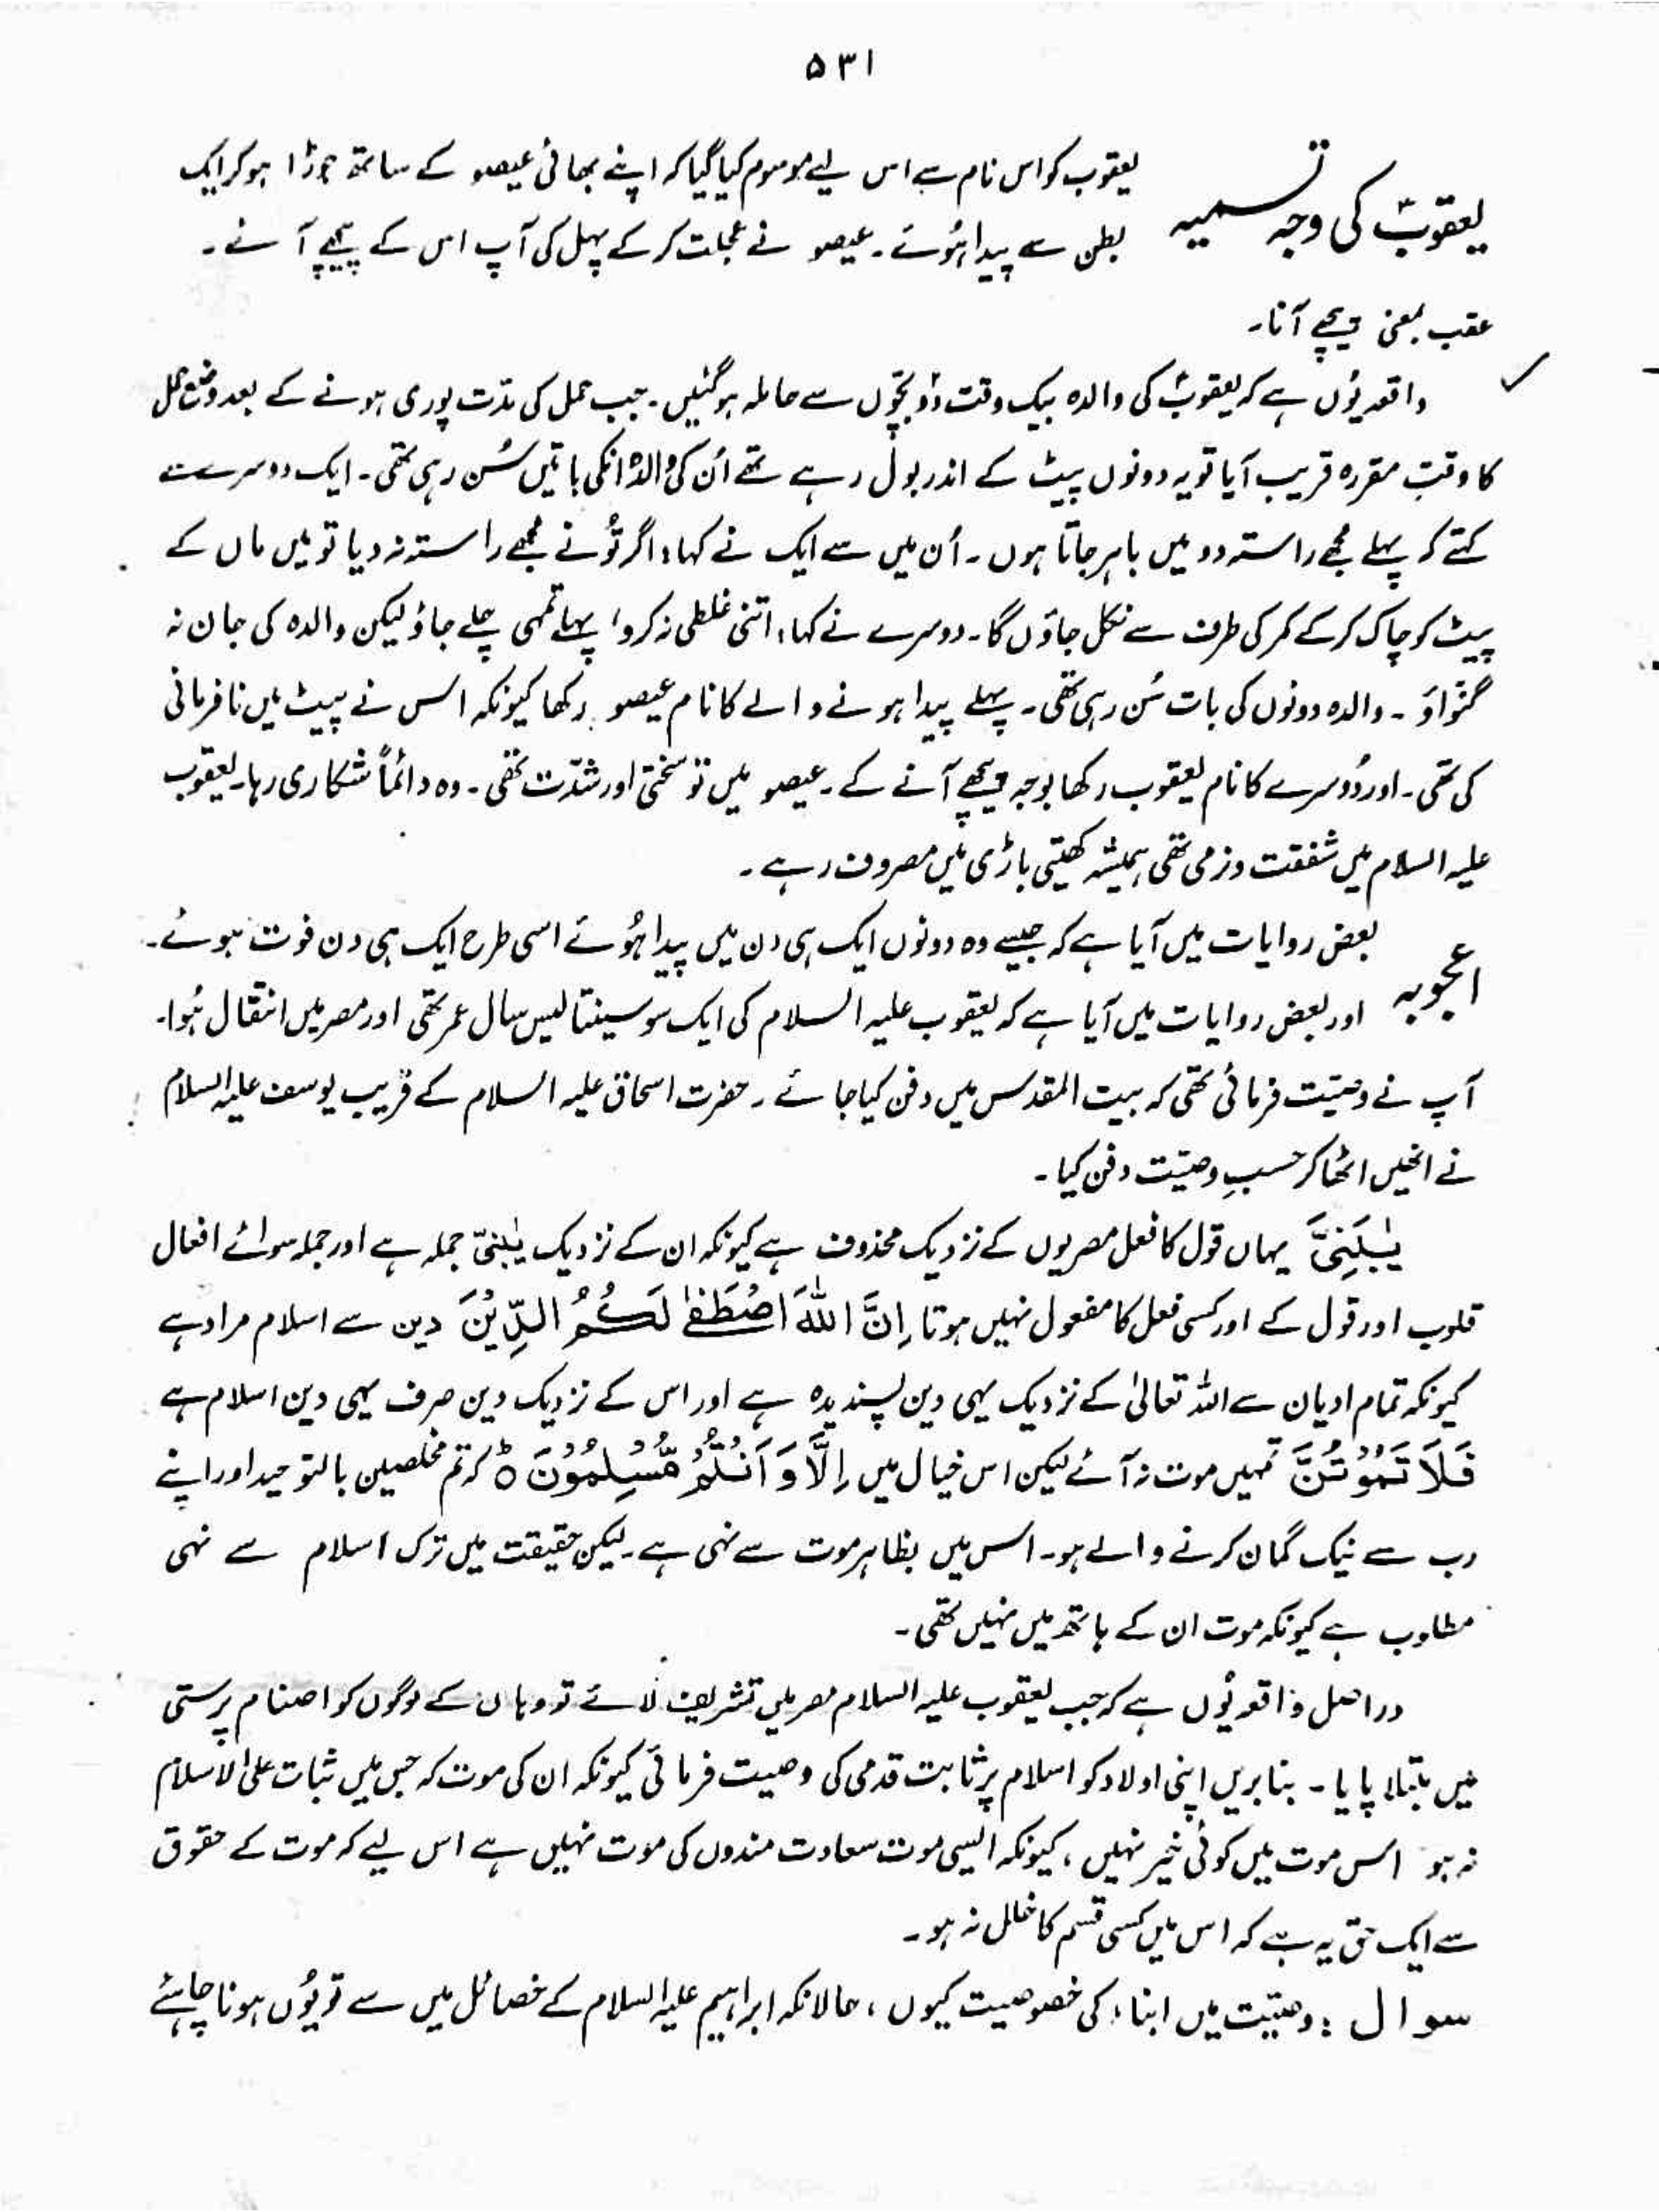 ۵۳۱
یعقوبؑ کی وجہ تسمیہ
یعقوب کو اس نام سے اس لیے موسوم کیا گیا کہ اپنے بھائی عیصو کے ساتھ جوڑا ہو کر ایک
بطن سے پیدا ہُوئے۔ عیصو نے عجلت کر کے پہل کی آپ اس کے پیچھے آئے۔
عقب بمعنی پیچھے آنا۔
واقعہ یُوں ہے کہ یعقوبؑ کی والدہ بیک وقت دو بچّوں سے حاملہ ہو گئیں۔ جب حمل کی مدّت پوری ہونے کے بعد وضع حمل
کا وقتِ مقررہ قریب آیا تو یہ دونوں پیٹ کے اندر بول رہے تھے اُن کی والدہ انکی باتیں سُن رہی تھی۔ ایک دوسرے سے
کہتے کہ پہلے مجھے راستہ دو میں باہر جاتا ہوں۔ اُن میں سے ایک نے کہا: اگر تُو نے مجھے راستہ نہ دیا تو میں ماں کے
پیٹ کو چاک کر کے کمر کی طرف سے نکل جاؤں گا۔ دوسرے نے کہا: اتنی غلطی نہ کرو، پہلے تمہی چلے جاؤ لیکن والدہ کی جان نہ
گنواؤ۔ والدہ دونوں کی بات سُن رہی تھی۔ پہلے پیدا ہونے والے کا نام عیصو رکھا کیونکہ اس نے پیٹ میں نافرمانی
کی تھی۔ اور دُوسرے کا نام یعقوب رکھا بوجہ پیچھے آنے کے۔ عیصو میں تو سختی اور شدّت تھی۔ وہ دائماً شکاری رہا۔ یعقوب
علیہ السلام میں شفقت و نرمی تھی ہمیشہ کھیتی باڑی میں مصروف رہے۔
اعجوبہ
بعض روایات میں آیا ہے کہ جیسے وہ دونوں ایک ہی دن میں پیدا ہُوئے اسی طرح ایک ہی دن فوت ہوئے۔
اور بعض روایات میں آیا ہے کہ یعقوب علیہ السلام کی ایک سو سینتالیس سال عمر تھی اور مصر میں انتقال ہُوا۔
آپ نے وصیّت فرمائی تھی کہ بیت المقدس میں دفن کیا جائے۔ حضرت اسحاق علیہ السلام کے قریب یوسف علیہ السلام
نے انھیں اٹھا کر حسبِ وصیّت دفن کیا۔
یٰبَنِیَّ یہاں قول کا فعل مصریوں کے نزدیک محذوف ہے کیونکہ ان کے نزدیک یٰبنیّ جملہ ہے اور جملہ سوائے افعال
قلوب اور قول کے اور کسی فعل کا مفعول نہیں ہوتا اِنَّ اللّٰہَ اصْطَفٰی لَکُمُ الدِّیْنَ دین سے اسلام مراد ہے
کیونکہ تمام ادیان سے اللہ تعالیٰ کے نزدیک یہی دین پسندیدہ ہے اور اس کے نزدیک دین صرف یہی دین اسلام ہے
فَلَا تَمُوْتُنَّ تمہیں موت نہ آئے لیکن اس خیال میں اِلَّا وَ اَنْتُمْ مُّسْلِمُوْنَ ۝ کہ تم مخلصین بالتوحید اور اپنے
رب سے نیک گمان کرنے والے ہو۔ اس میں بظاہر موت سے نہی ہے۔ لیکن حقیقت میں ترک اسلام سے نہی
مطلوب ہے کیونکہ موت ان کے ہاتھ میں نہیں تھی۔
دراصل واقعہ یُوں ہے کہ جب یعقوب علیہ السلام مصر میں تشریف لائے تو وہاں کے لوگوں کو اصنام پرستی
میں مبتلا پایا۔ بنابریں اپنی اولاد کو اسلام پر ثابت قدمی کی وصیت فرمائی کیونکہ ان کی موت کہ جس میں ثبات علی الاسلام
نہ ہو اس موت میں کوئی خیر نہیں، کیونکہ ایسی موت سعادت مندوں کی موت نہیں ہے اس لیے کہ موت کے حقوق
سے ایک حق یہ ہے کہ اس میں کسی قسم کا خلل نہ ہو۔
سوال : وصیّت میں ابناء کی خصوصیت کیوں، حالانکہ ابراہیم علیہ السلام کے خصائل میں سے تو یُوں ہونا چاہئے